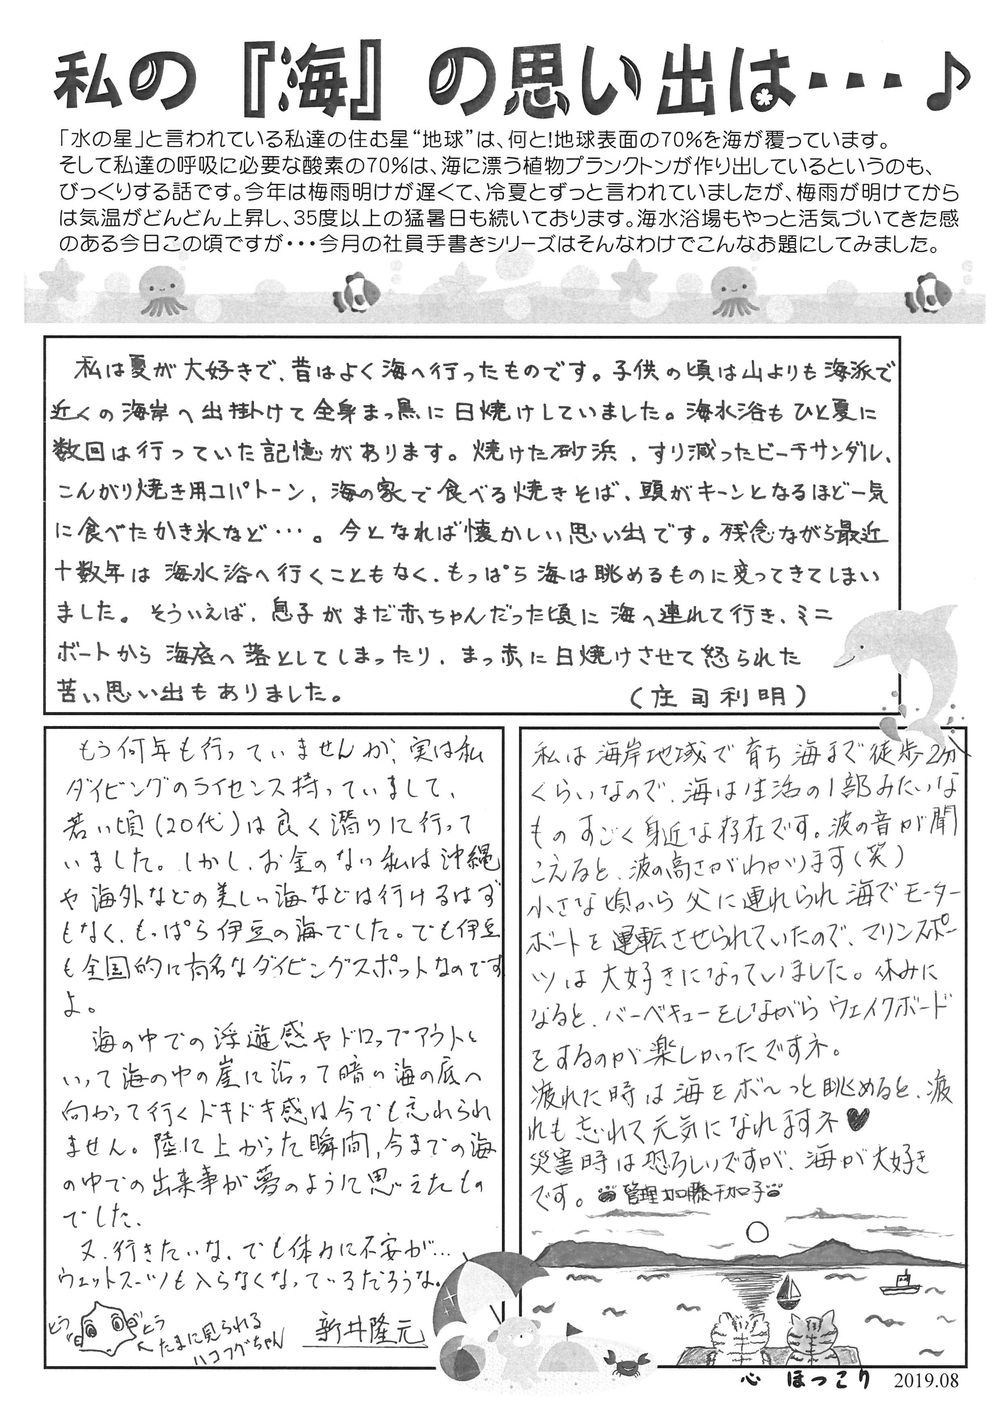 私の『海』の思い出は・・・♪
「水の星」と言われている私達の住む星“地球”は、何と!地球表面の70%を海が覆っています。
そして私達の呼吸に必要な酸素の70%は、海に漂う植物プランクトンが作り出しているというのも、
びっくりする話です。今年は梅雨明けが遅くて、冷夏とずっと言われていましたが、梅雨が明けてから
は気温がどんどん上昇し、35度以上の猛暑日も続いております。海水浴場もやっと活気づいてきた感
のある今日この頃ですが・・・今月の社員手書きシリーズはそんなわけでこんなお題にしてみました。
私は夏が大好きで、昔はよく海へ行ったものです。子供の頃は山よりも海派で
近くの海岸へ出掛けて全身まっ黒に日焼けしていました。海水浴もひと夏に
数回は行っていた記憶があります。焼けた砂浜、すり減ったビーチサンダル、
こんがり焼き用コパトーン、海の家で食べる焼きそば、頭がキーンとなるほど一気
に食べたかき氷など・・・。今となれば懐かしい思い出です。残念ながら最近
十数年は海水浴へ行くこともなく、もっぱら海は眺めるものに変ってきてしまい
ました。そういえば、息子がまだ赤ちゃんだった頃に海へ連れて行き、ミニ
ボートから海底へ落としてしまったり、まっ赤に日焼けさせて怒られた
苦い思い出もありました。（庄司利明）
もう何年も行っていませんが、実は私
ダイビングのライセンス持っていまして、
若い頃(20代)は良く潜りに行って
いました。しかし、お金のない私は沖縄
や海外などの美しい海などは行けるはず
もなく、もっぱら伊豆の海でした。でも伊豆
も全国的に有名なダイビングスポットなのです
よ。
海の中での浮遊感やドロップアウトと
いって海の中の崖に沿って暗の海の底へ
向かって行くドキドキ感は今でも忘れられ
ません。陸に上がった瞬間、今までの海
の中での出来事が夢のように思えたもの
でした。
又、行きたいな、でも体力に不安が…
ウェットスーツも入らなくなっているだろうな。
どう
どう
たまに見られる
ハコフグちゃん
新井隆元
私は海岸地域で育ち海まで徒歩2分
くらいなので、海は生活の1部みたいな
ものすごく身近な存在です。波の音が聞
こえると、波の高さがわかります(笑)
小さな頃から父に連れられ海でモーター
ボートを運転させられていたので、マリンスポー
ツは大好きになっていました。休みに
なると、バーベキューをしながらウェイクボード
をするのが楽しかったですネ。
疲れた時は海をボ～っと眺めると、疲
れも忘れて元気になれますネ♥
災害時は恐ろしいですが、海が大好き
です。管理 加藤千加子
心 ほっこり
2019.08